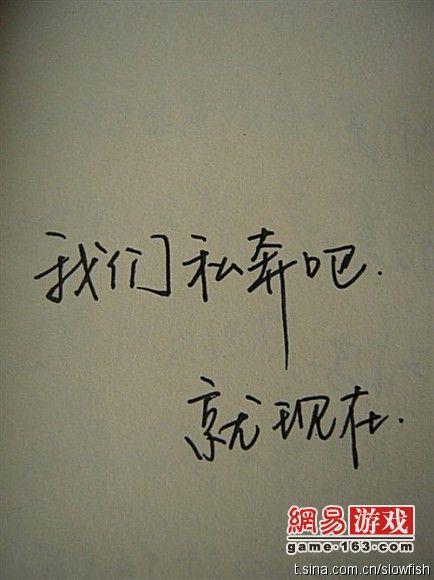 我们私奔吧.
就现在.
網易游戏
game·163·com
t.sina.com.cn/slowfish